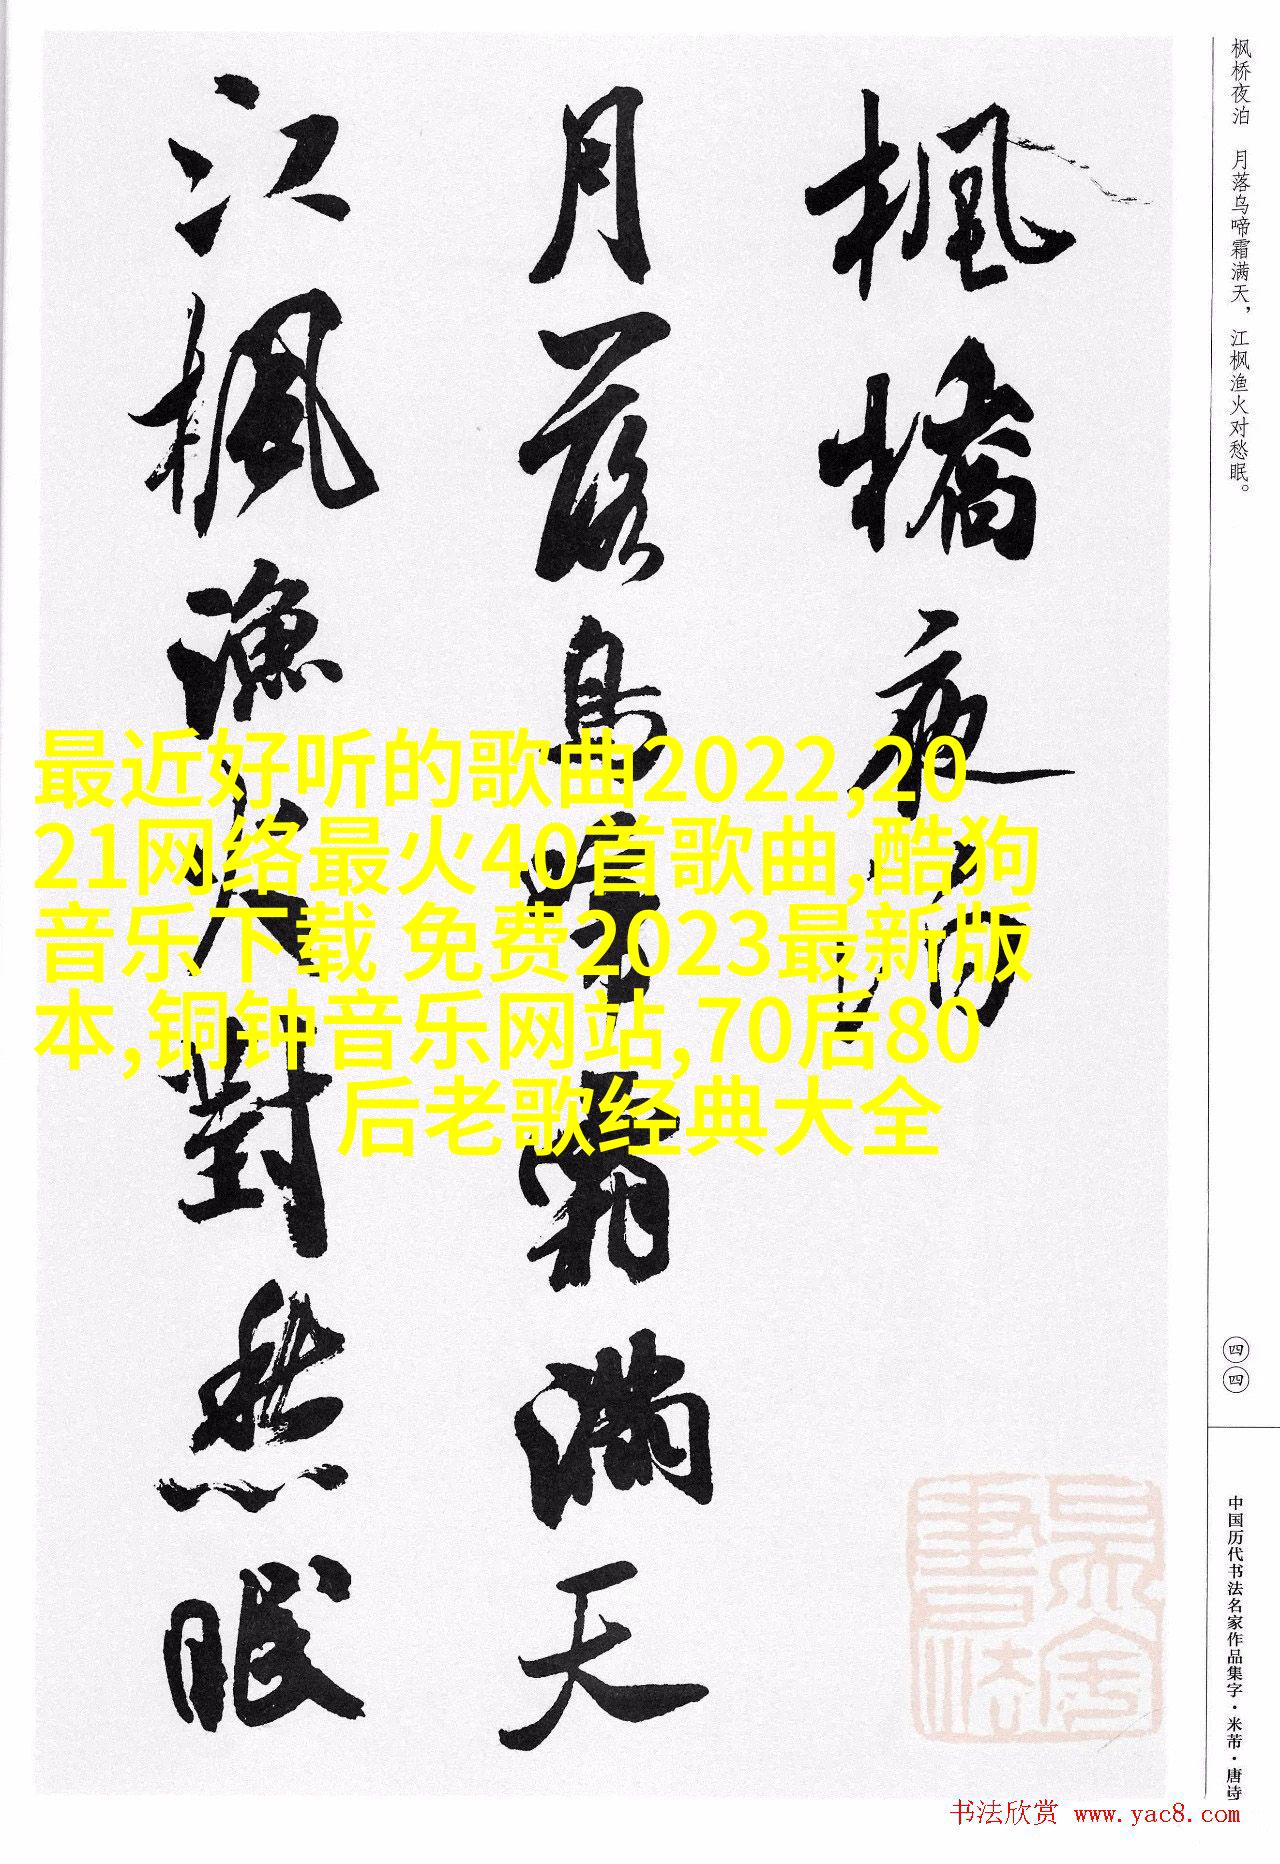 枫桥夜泊 月落乌啼霜满天，江枫渔火对愁眠。
楓橋夜泊
月落烏啼霜滿天
江楓漁火對愁眠
最近好听的歌曲2022,20
21网络最火40首歌曲,酷狗
音乐下载 免费2023最新版
本,铜钟音乐网站,70后80
后老歌经典大全
四四
中国历代书法名家作品集字·米芾·唐诗
书法欣赏 www.yac8.com